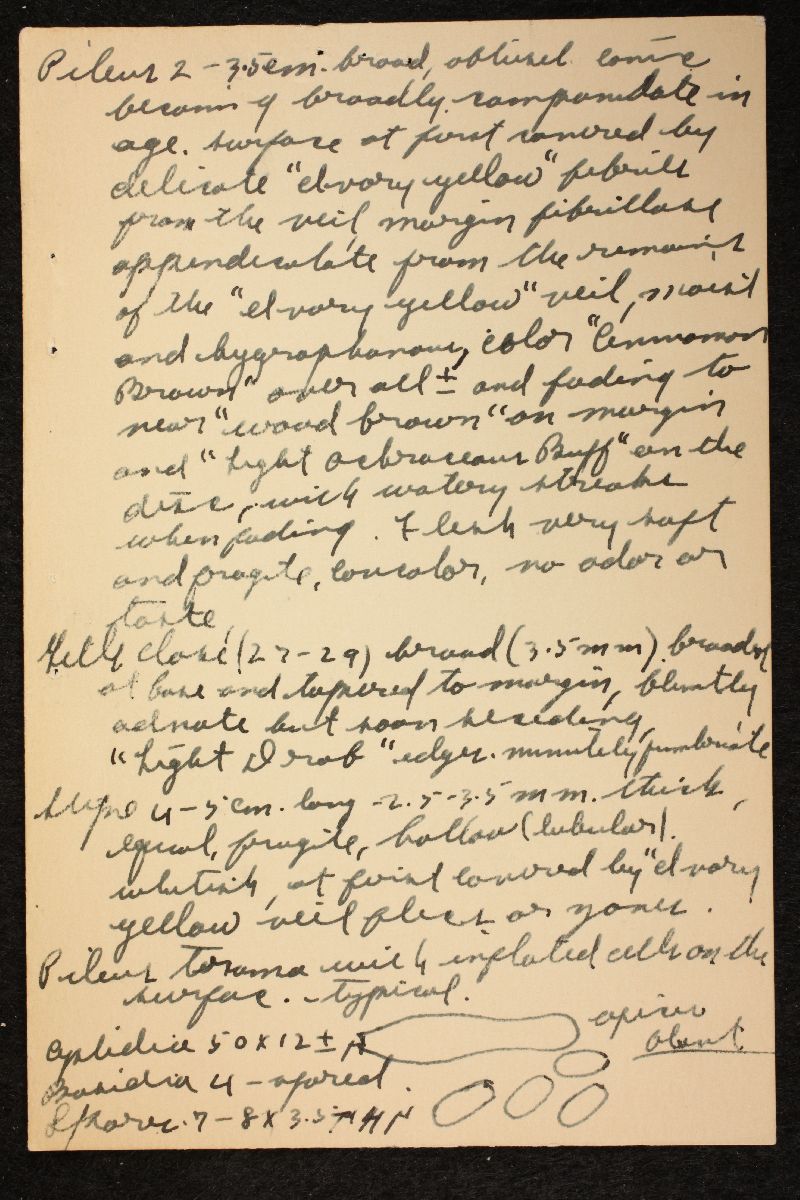 Pileus 2 - 3.5 cm. broad, obtusel conic
becoming broadly campanulate in
age. surface at first covered by
delicate "Ivory yellow" fibrils
from the veil, margin fibrillose
appendiculate from the remains
of the "Ivory yellow" veil, moist
and hygrophanous, color "Cinnamon
Brown" over all ± and fading to
near "wood brown" on margin
and "Light Ochraceous Buff" on the
disc, with watery streaks
when fading. Flesh very soft
and fragile, concolor, no odor or
taste,
Gills close (27-29) broad (3.5 mm) broadest
at base and tapered to margin, bluntly
adnate but soon seceding,
"Light Drab" edges. minutely fimbriate
Stipe 4-5 cm. long - 2.5-3.5 mm. thick,
equal, fragile, hollow (tubular).
whitish, at first covered by "Ivory
yellow" veil flecks or zones.
Pileus trama with inflated cells on the
surface. - typical.
apices
blunt
Cystidia 50 x 12 ± µ
Basidia 4-spored.
Spores 7-8 x 3.5-4 µ